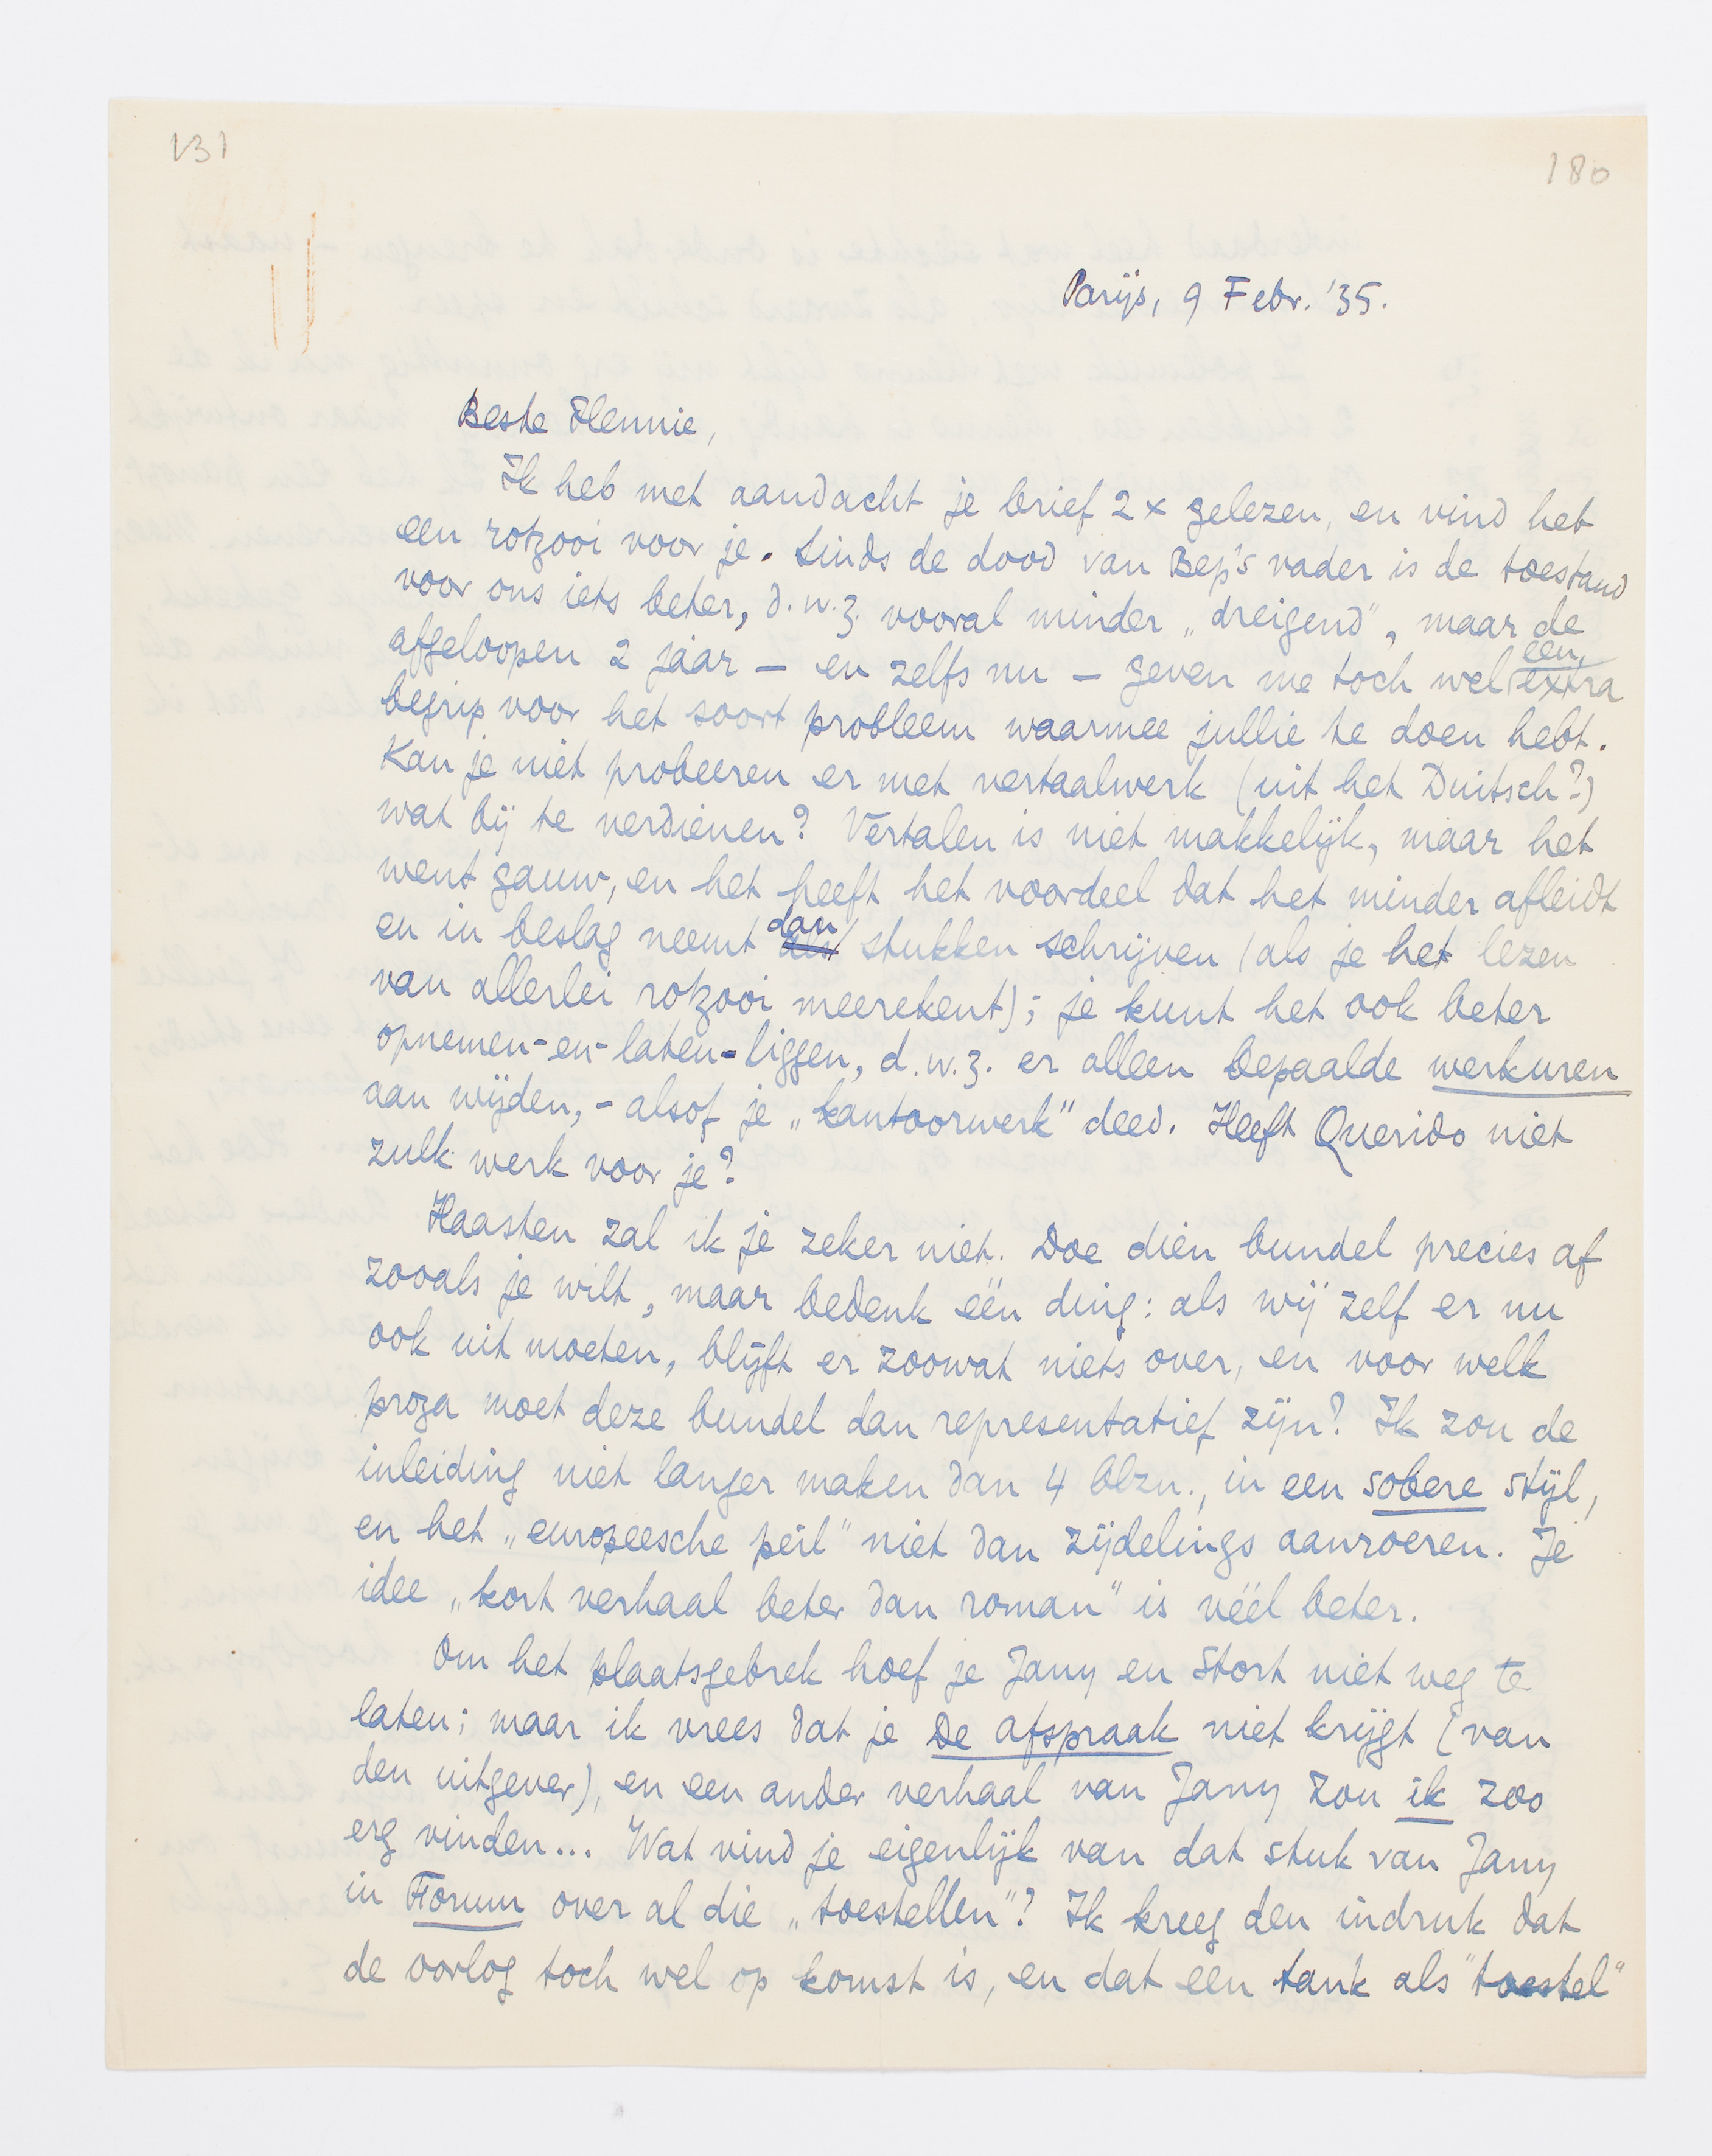 131
180
Parijs, 9 Febr. '35.
Beste Mennie,
Ik heb met aandacht je brief 2 x gelezen, en vind het
een rotzooi voor je. Sinds de dood van Bep's vader is de toestand
voor ons iets beter, d.w.z. vooral minder „dreigend”, maar de
afgeloopen 2 jaar – en zelfs nu – geven me toch wel een extra
begrip voor het soort probleem waarmee jullie te doen hebt.
Kan je niet probeeren er met vertaalwerk (uit het Duitsch?)
wat bij te verdienen? Vertalen is niet makkelijk, maar het
went gauw, en het heeft het voordeel dat het minder afleidt
en in beslag neemt dan stukken schrijven (als je het lezen
van allerlei rotzooi meerekent); je kunt het ook beter
opnemen-en-laten-liggen, d.w.z. er alleen bepaalde werkuren
aan wijden, – alsof je „kantoorwerk” deed. Heeft Querido niet
zulk werk voor je?
Haasten zal ik je zeker niet. Doe dien bundel precies af
zooals je wilt, maar bedenk één ding: als wij zelf er nu
ook uit moeten, blijft er zoowat niets over, en voor welk
proza moet deze bundel dan representatief zijn? Ik zou de
inleiding niet langer maken dan 4 blzn., in een sobere stijl,
en het „europeesche peil” niet dan zijdelings aanroeren. Je
idee „kort verhaal beter dan roman” is véél beter.
Om het plaatsgebrek hoef je Jany en Stort niet weg te
laten; maar ik vrees dat je De afspraak niet krijgt (van
den uitgever), en een ander verhaal van Jany zou ik zoo
erg vinden... Wat vind je eigenlijk van dat stuk van Jany
in Forum over al die „toestellen”? Ik kreeg den indruk dat
de oorlog toch wel op komst is, en dat een tank als "toestel"